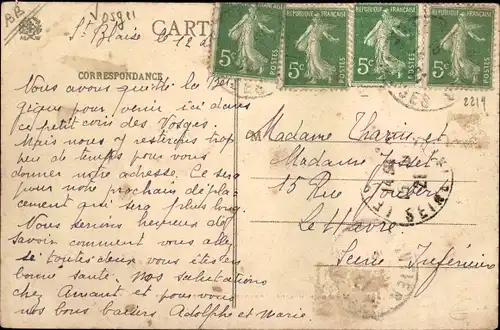 Vosges
CARTE
St Blaise le 12
RÉPUBLIQUE FRANÇAISE 5c POSTES
RÉPUBLIQUE FRANÇAISE 5c POSTES
RÉPUBLIQUE FRANÇAISE 5c POSTES
RÉPUBLIQUE FRANÇAISE 5c POSTES
2219
CORRESPONDANCE
Nous avons quitté la Bel
gique pour venir ici dans
ce petit coin des Vosges.
Mais nous y resterons trop
peu de temps pour vous
donner notre adresse. Ce sera
pour notre prochain dépla-
cement qui sera plus long.
Nous serions heureux de
savoir comment vous allez
se toutes deux vous êtes en
bonne santé. Nos salutations
chez Amant et pour vous
nos bons baisers Adolphe et Marie.
M
Madame et
Madame
15 Rue Joubert
Le Havre
Seine Inférieure